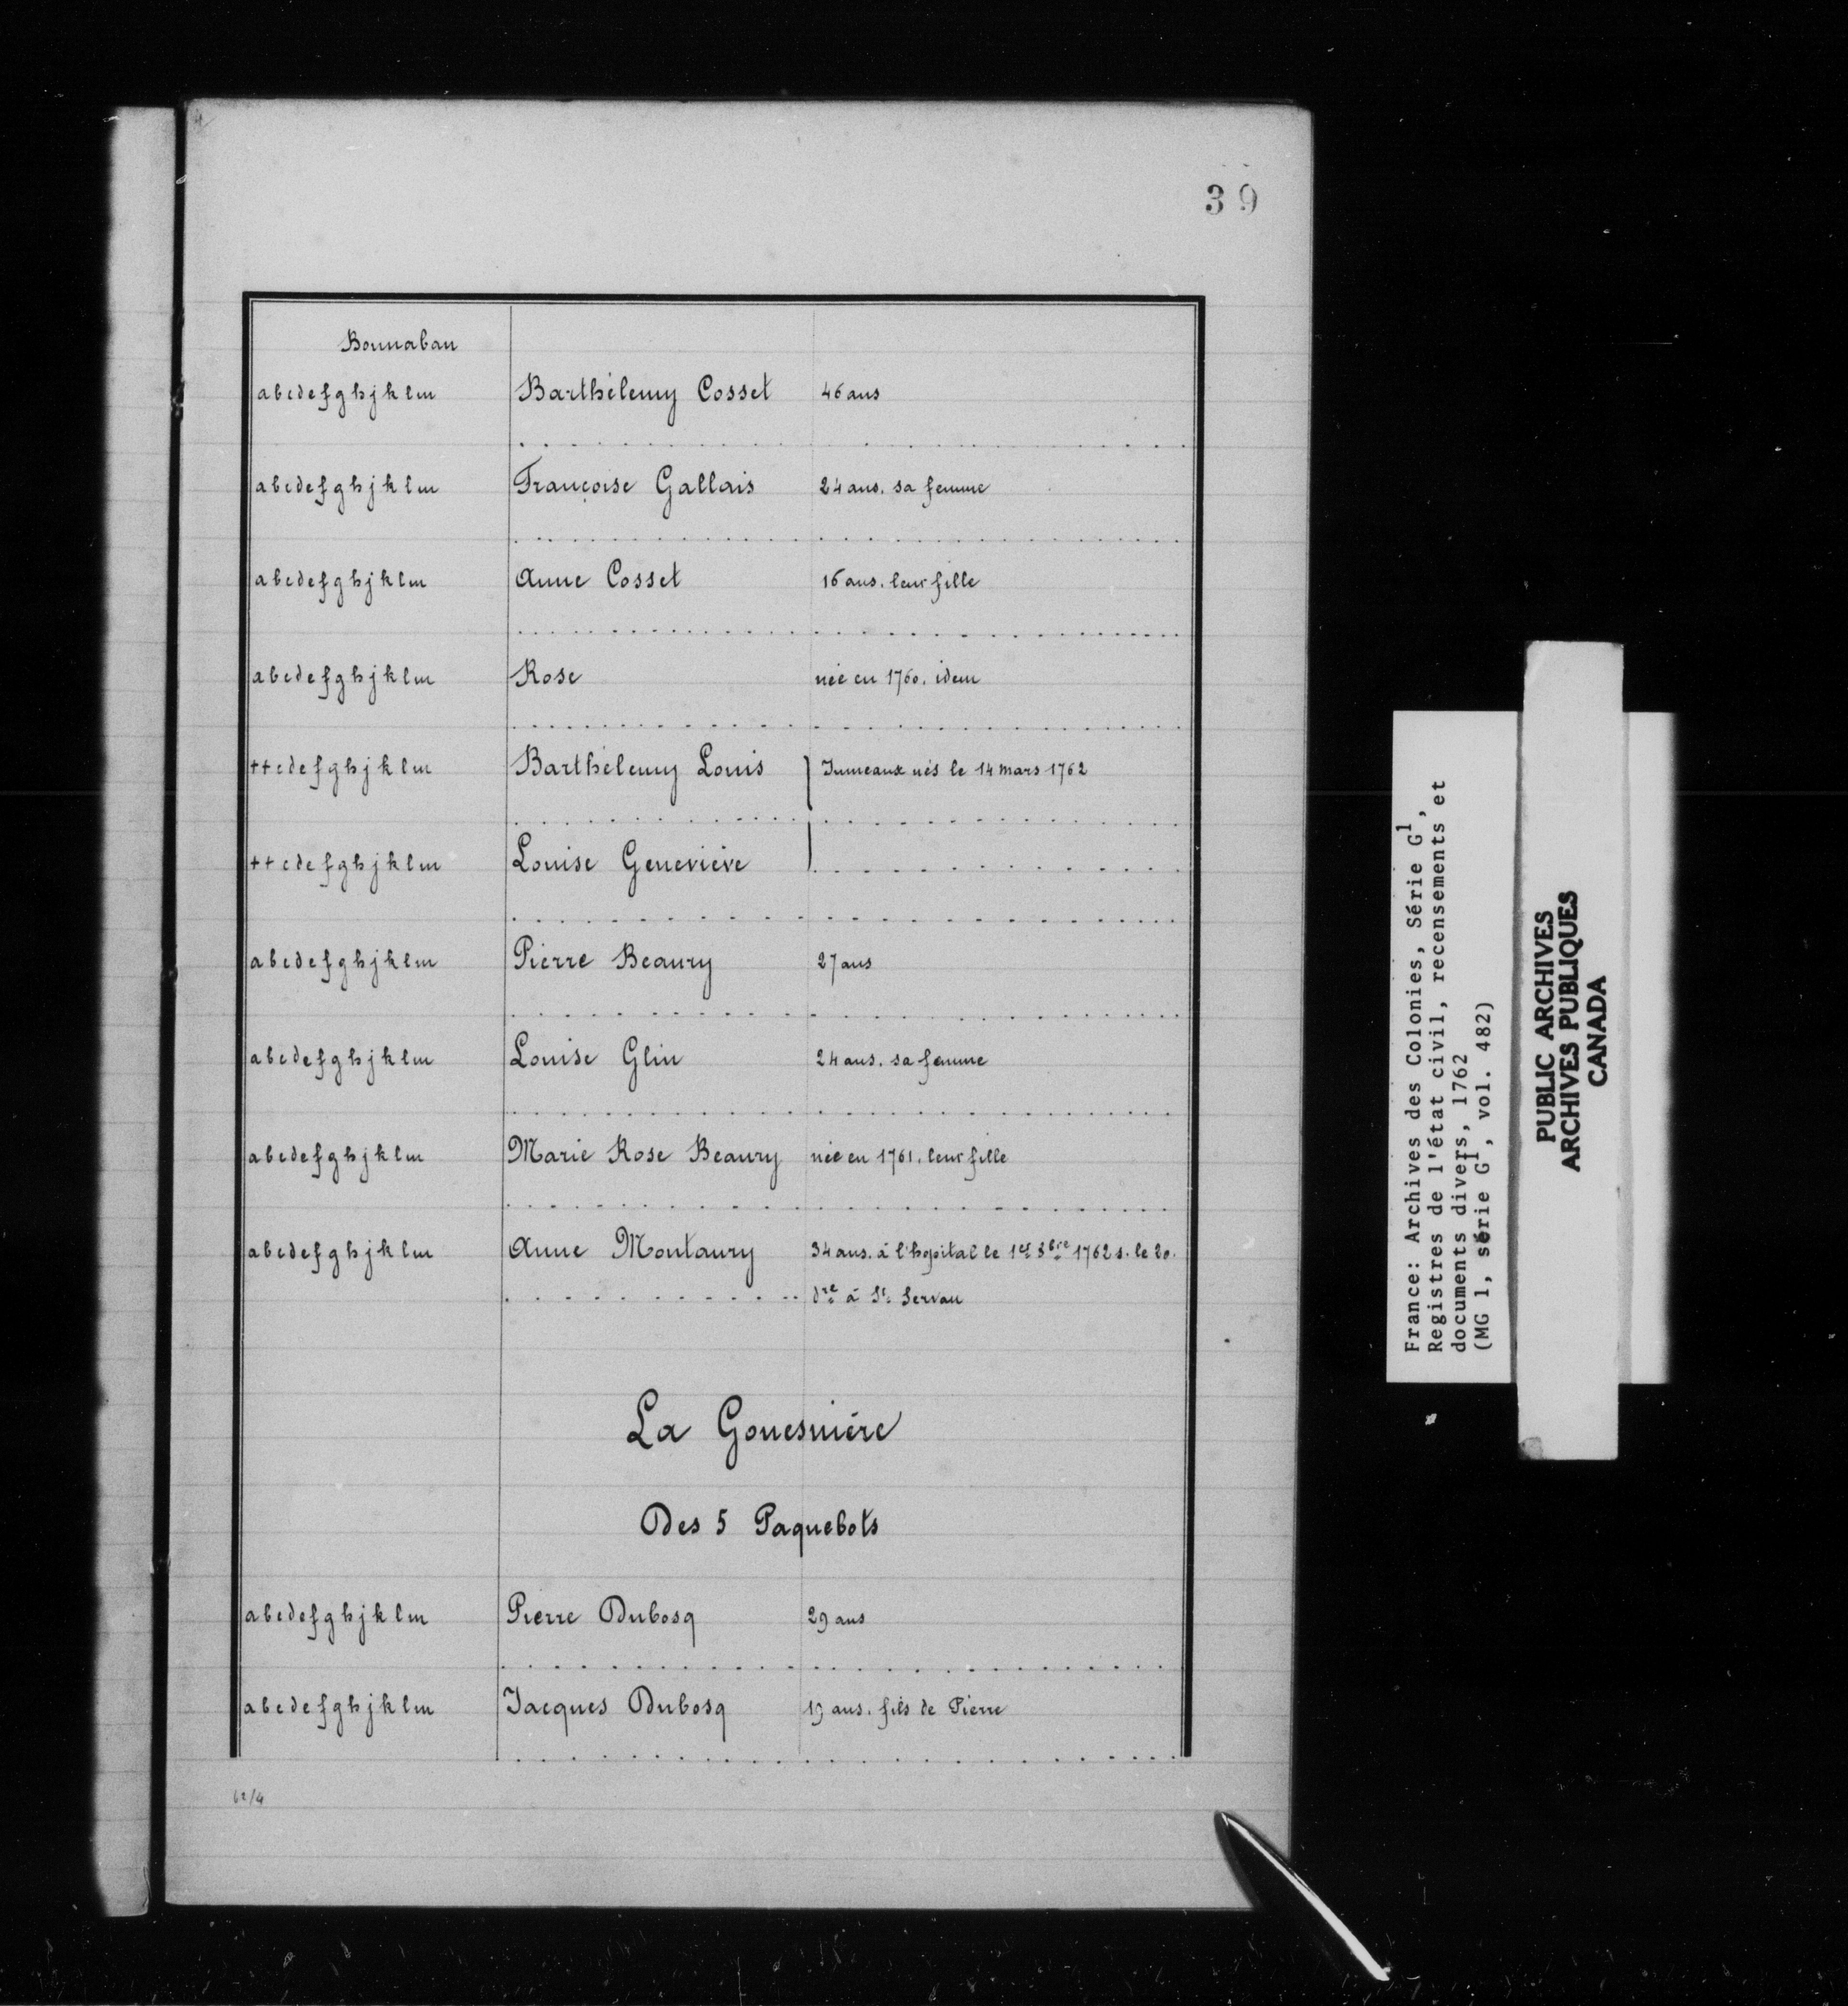 39
Bonnaban
abcdefghjklm Barthélemy Cosset 46 ans
abcdefghjklm Françoise Gallais 24 ans. sa femme
abcdefghjklm Anne Cosset 16 ans. leur fille
abcdefghjklm Rose née en 1760. idem
++cdefghjklm Barthélemy Louis } Jumeaux nés le 14 mars 1762
++cdefghjklm Louise Geneviève
abcdefghjklm Pierre Beaury 27 ans
abcdefghjklm Louise Glin 24 ans. sa femme
abcdefghjklm Marie Rose Beaury née en 1761. leur fille
abcdefghjklm Anne Montaury 34 ans. à l'hopital le 1er 8bre 1762 s. le 20.
dre à St. Servan
La Gouesnière
Des 5 Paquebots
abcdefghjklm Pierre Dubosq 29 ans
abcdefghjklm Jacques Dubosq 19 ans. fils de Pierre
France: Archives des Colonies, Série G1,
Registres de l'état civil, recensements et
documents divers, 1762
(MG 1, série G1, vol. 482)
PUBLIC ARCHIVES
ARCHIVES PUBLIQUES
CANADA